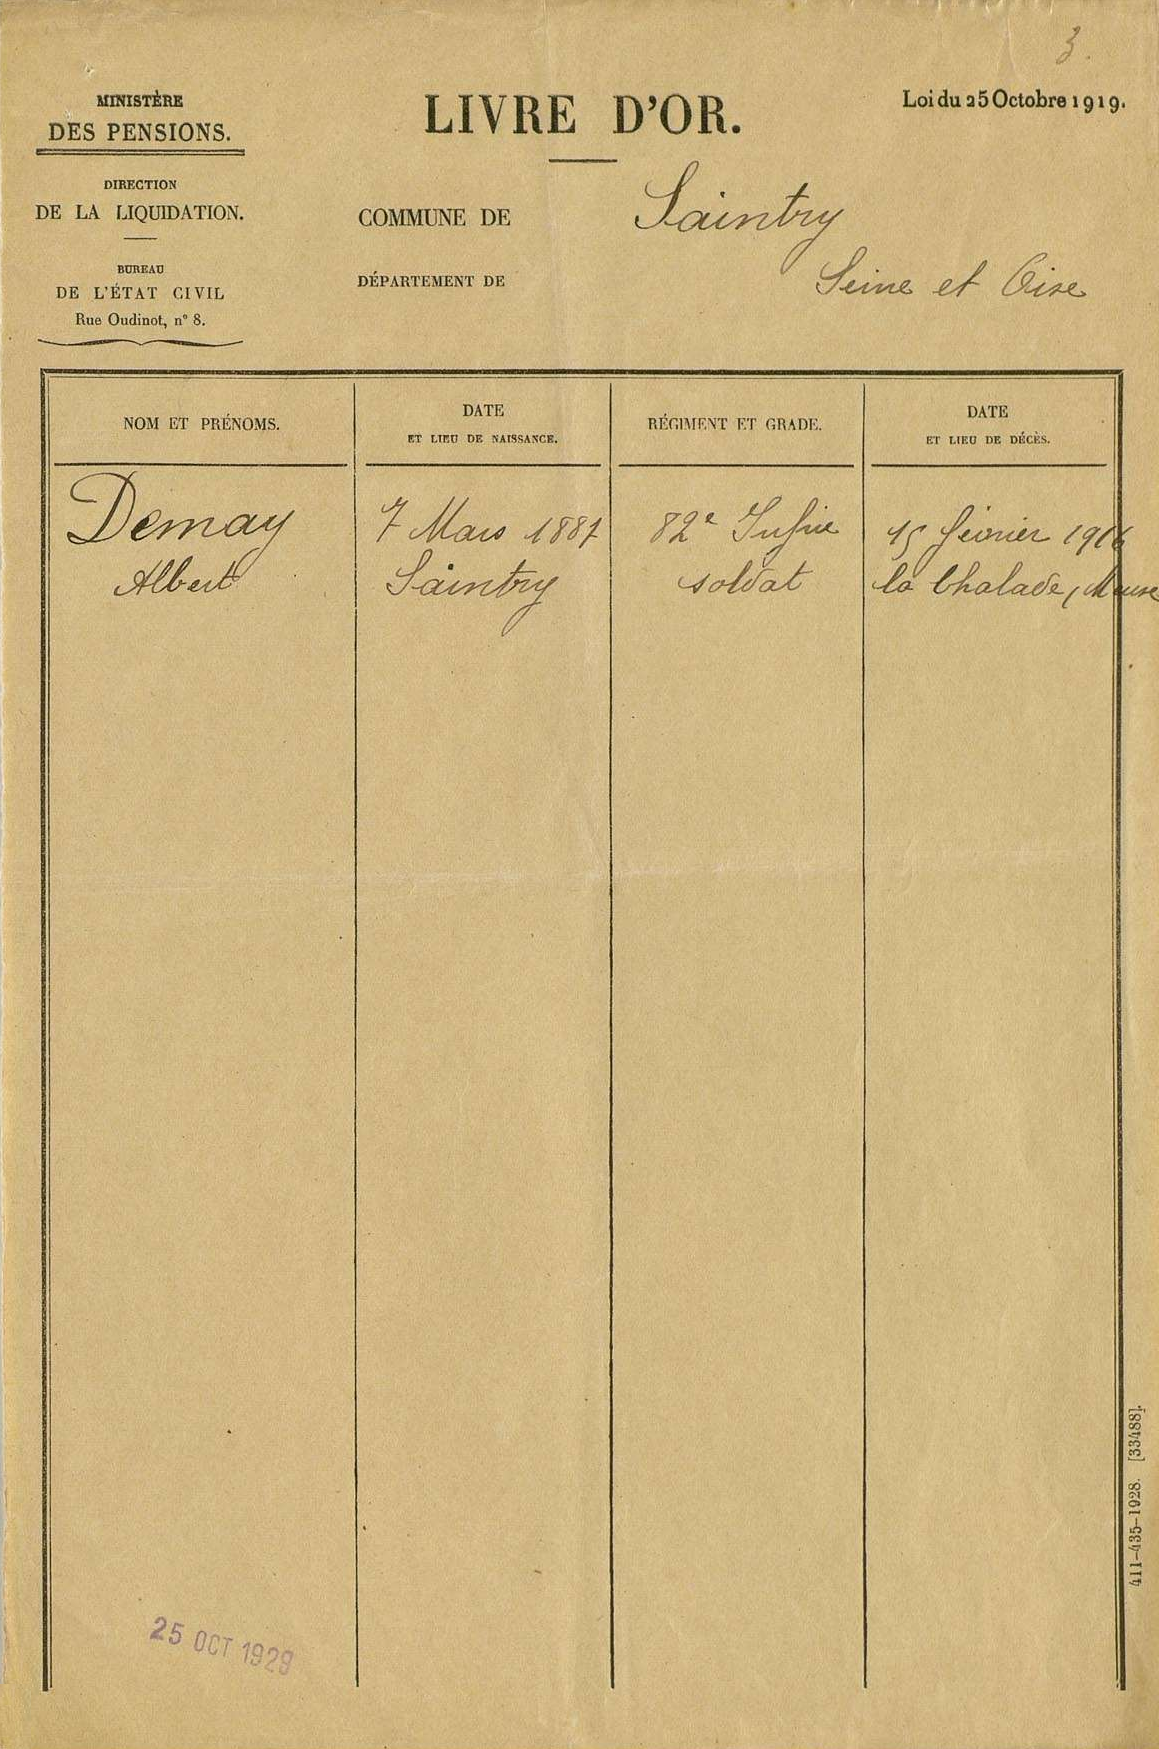 3.
MINISTÈRE
DES PENSIONS.
DIRECTION
DE LA LIQUIDATION.
BUREAU
DE L'ÉTAT CIVIL
Rue Oudinot, n° 8.
LIVRE D'OR.
Loi du 25 Octobre 1919.
COMMUNE DE Saintry
DÉPARTEMENT DE Seine et Oise
NOM ET PRÉNOMS.
DATE
ET LIEU DE NAISSANCE.
RÉGIMENT ET GRADE.
DATE
ET LIEU DE DÉCÈS.
Demay
Albert
7 Mars 1887
Saintry
82e Infrie
soldat
15 février 1916
la Chalade, Meuse
411-435-1928. [33488].
25 OCT 1929